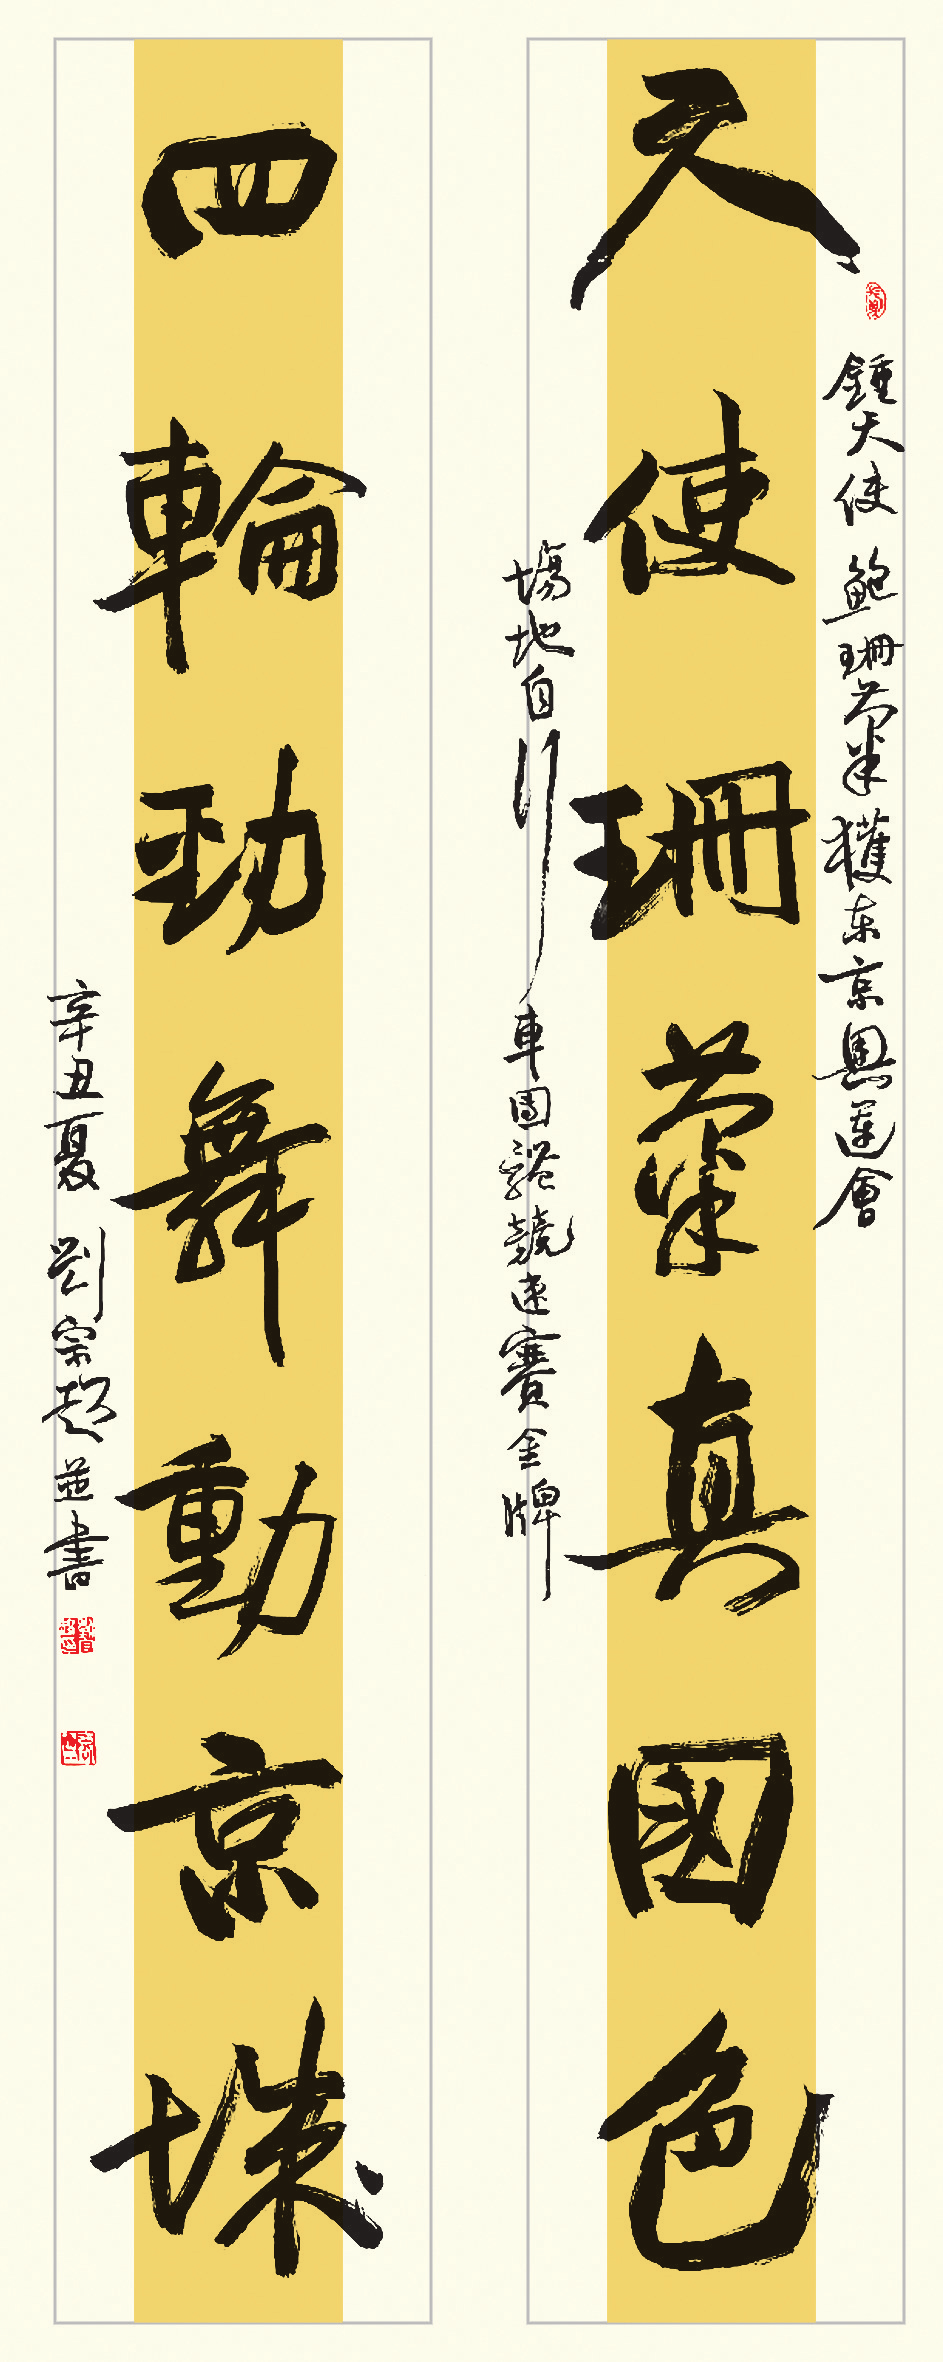 鍾天使鮑珊菊獲东京奧運會
天使珊菊真國色
場地自行車團體競速賽金牌
四輪勁舞動京城
辛丑夏劉宗超並書